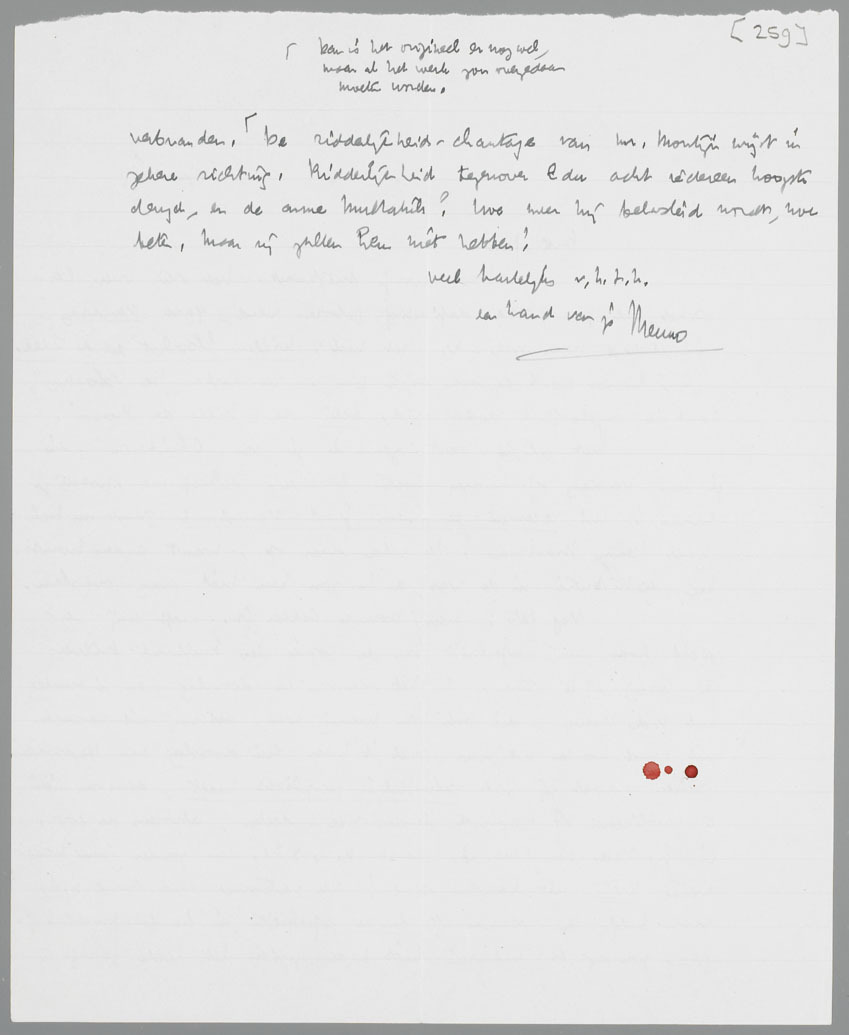 [259]
dan is het origineel er nog wel,
maar al het werk zou overgedaan
moeten worden.
verbranden. De ridderlijkheids-chantage van mr. Montijn wijst in
zekere richting. Ridderlijkheid tegenover Edu acht iedereen hoogste
deugd, en de arme Multatuli? Hoe meer hij wordt, hoe
beter, maar zij zullen hem niet hebben!
veel hartelijks v.h.t.h.
een hand van je Menno